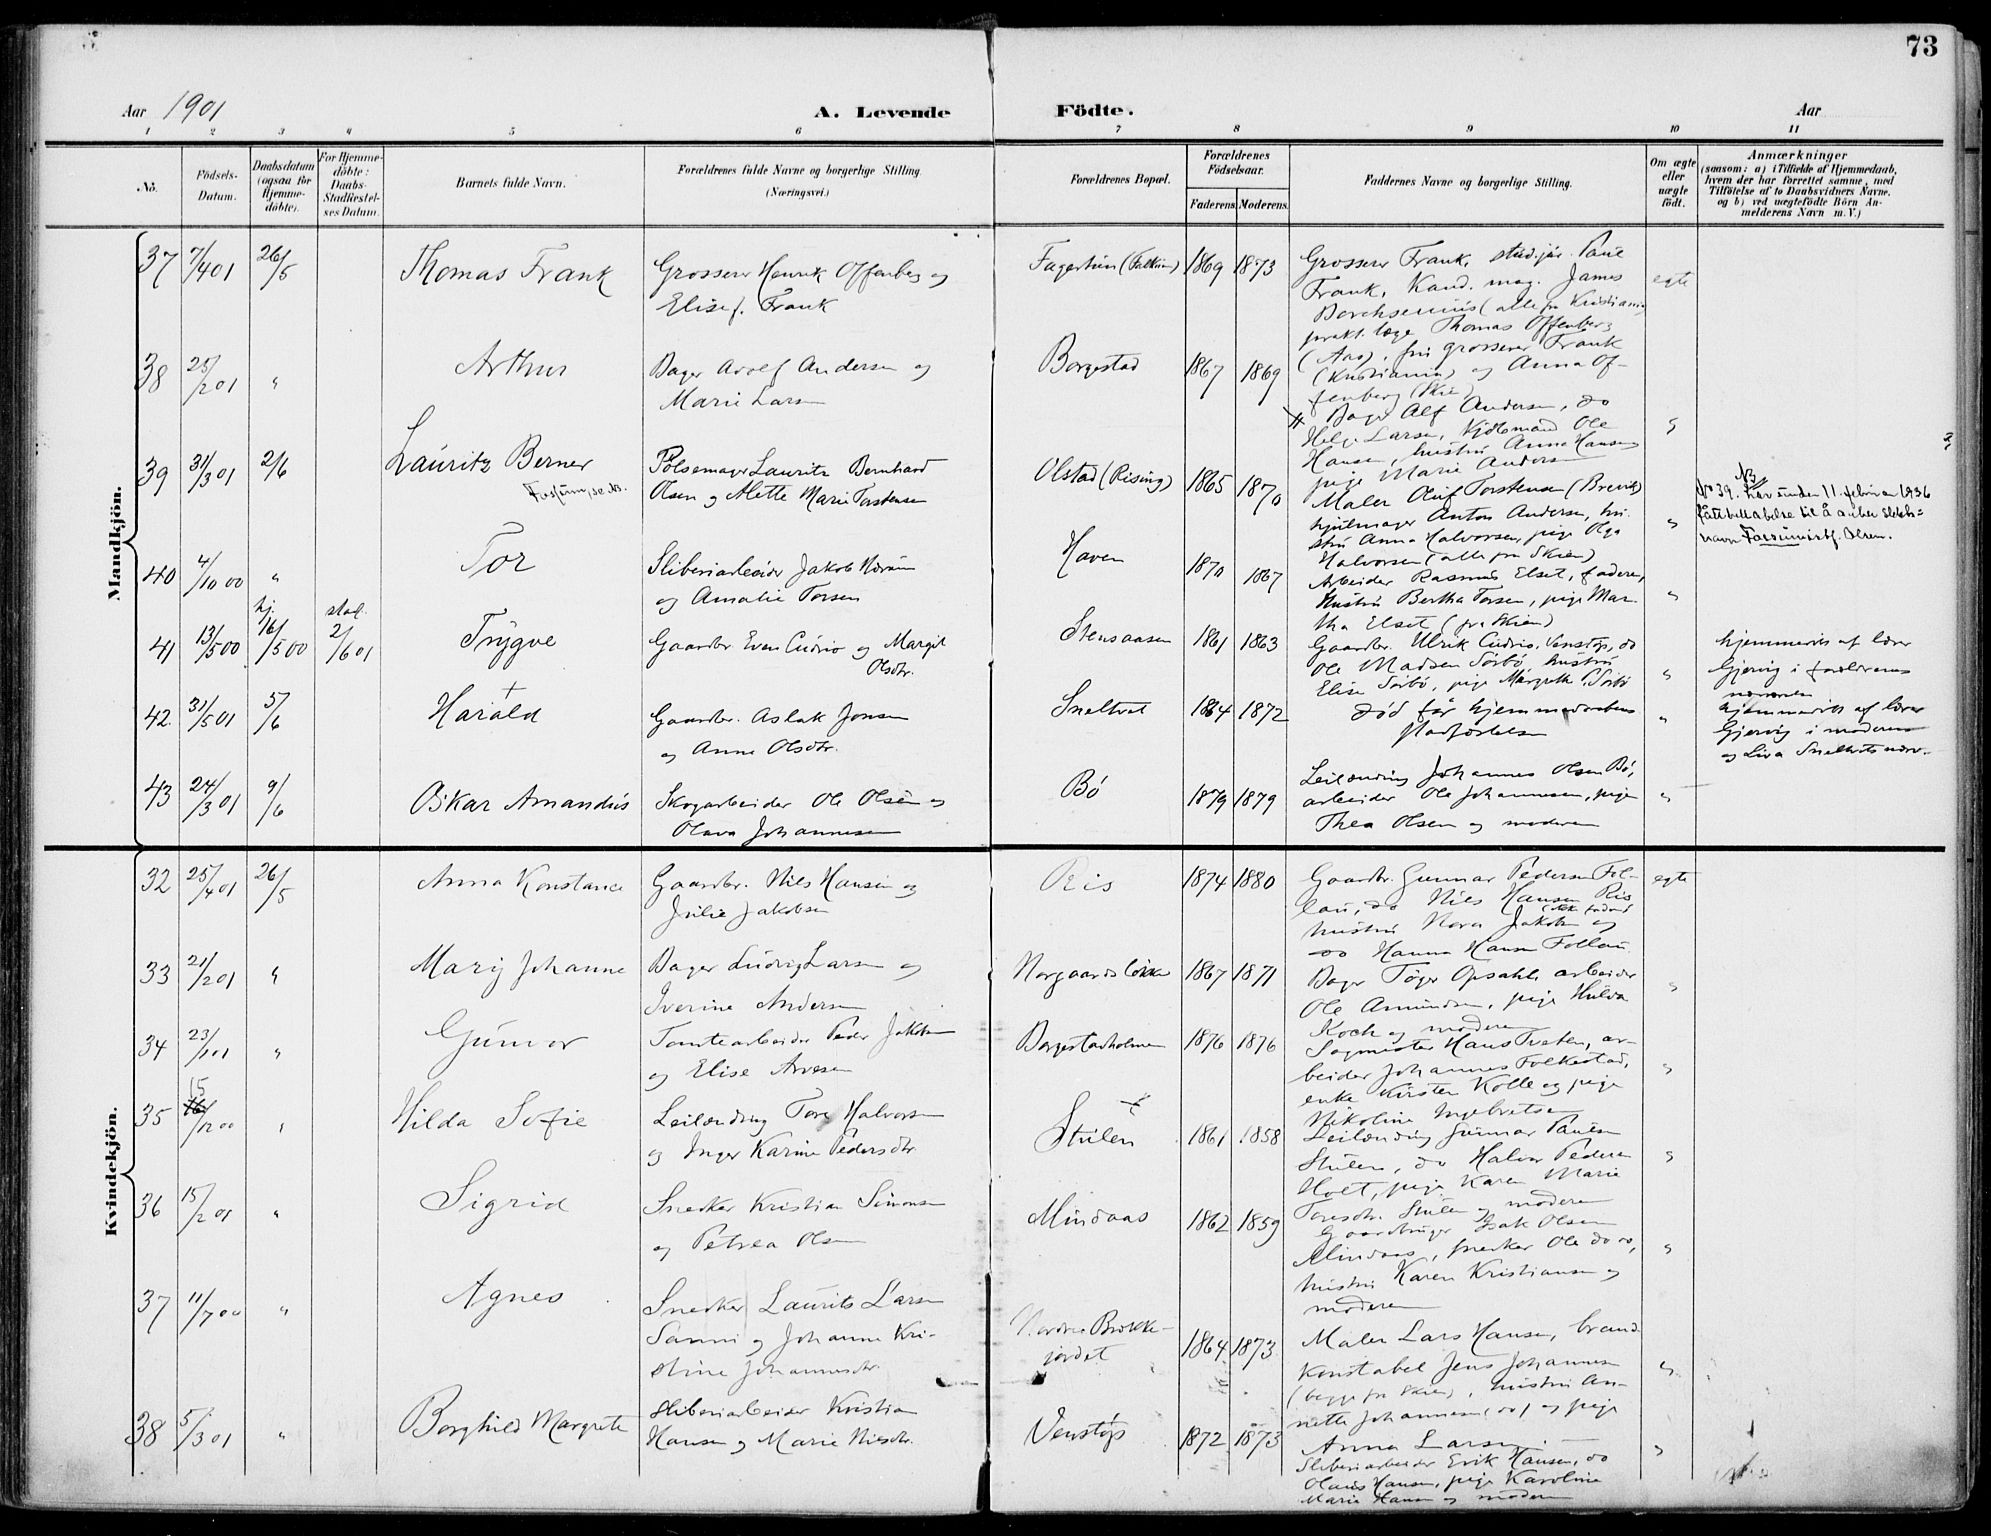 73
Aar 1901
A. Levende Födte.
Aar
1 2 3 4 5 6 7 8 9 10 11
No.
Födsels-Datum.
Daabsdatum (ogsaa for Hjemme-döbte).
For Hjemme-döbte: Daabs-Stadfæstel-ses Datum.
Barnets fulde Navn.
Forældrenes fulde Navne og borgerlige Stilling.
(Næringsvei.)
Forældrenes Bopæl.
Forældrenes Födselsaar.
Faderens. Moderens.
Faddernes Navne og borgerlige Stilling.
Om ægte eller uægte födt.
Anmærkninger
(saasom: a) i Tilfælde af Hjemmedaab,
hvem der har forrettet samme, med
Tilföielse af to Daabsvidners Navne,
og b) ved uægtefödte Börn An-
melderens Navn m. V.)
Mandkjön.
37 7/4 01 26/5 Thomas Frank
Grosserer Henrik Offenberg og
Elise f. Frank
Fagertun (Falkum) 1869 1873
Grosserer Frank, stud. jur. Paul
Frank, Kand. mag. James
Borchsenius (alle fra Kristiania
prakt. læge Thomas Offenberg
(Aas), fru grosserer Frank
(Kristiania) og Anna Of-
fenberg (Skien)
egte
38 25/2 01 " Arthur
Bager Adolf Andersen og
Marie Larsen
Borgestad 1867 1869
Bager Alf Andersen, do
Helge Larsen, Kjöbmand Ole
Hansen, hustru Anna Hansen
pige Marie Andersen
"
39 31/3 01 2/6 Lauritz Berner
Fossum, se NB.
Pölsemager Lauritz Bernhard
Olsen og Mette Marie Torstensen
Olstad (Rising) 1865 1870
Maler Oluf Torstensen (Brevik)
hjulmager Anton Andersen, hu-
stru Anna Halvorsen, pige Olga
Halvorsen (alle fra Skien)
"
NB
No 39. har under 11. februar 1936
fått bevilling til å anta slekts-
navn Fossum istf. Olsen.
40 4/10 00 " Tor
Sliberiarbeider Jakob
og Amalie Torsen
Haven 1870 1867
Arbeider Rasmus Elset, faderen,
Hustru Bertha Torsen, pige Mar-
tha Elset (fra Skien)
"
41 13/5 00 hj. 16/5 00 stad. 2/6 01 Trygve
Gaardbr. Even Cudrio og Margit
Olsdtr.
Stensaasen 1861 1863
Gaardbr. Ulrik Cudrio, Venstöp, do
Ole Madsen Sörbö, hustru
Elise Sörbö, pige Margrethe Sörbö
"
hjemmedöbt af lærer
Gjervig i forældrenes
nærværelse
42. 31/5 01 5/6 Harald
Gaardbr. Aslak Jonsen
og Anne Olsdtr.
Sneltvet 1864 1872
død før hjemmedaabens
stadfæstelse
"
hjemmedöbt af lærer
Gjervig i moderens
og Liva Sneltvets nærv.
43 24/3 01 9/6 Oskar Amandus
Skogarbeider Ole Olsen og
Olava Johannesen
Bö 1879 1879
Leilænding Johannes Olsen Bö,
arbeider Ole Johannesen, pige
Thea Olsen og moderen
"
Kvindekjön.
32 25/4 01 26/5 Anna Konstance
Gaardbr. Nils Hansen og
Julie Jakobsen
Ris 1874 1880
Gaardbr. Gunnar Pedersen Fol-
lau, do Nils Hansen Ris
(ikke fader)
hustru Nora Jakobsen og
do Hanna Hansen Follau
egte
33 21/2 01 " Mary Johanne
Bager Ludvig Larsen og
Iverine Andersen
Norgaardslökka 1867 1871
Bager Töger Opsahl, arbeider
Ole Amundsen, pige Hulda
Koch og moderen
"
34 23/1 01 " Gunvor
Tomtearbeider Peder Jakobsen
og Elise Arvesen
Borgestadholmen 1876 1876
Sagmester Hans Tveten, ar-
beider Johannes Folkestad,
enke Kirsten Kolle og pige
Nikoline Ingebretsen
"
35 15/12 00 " Hilda Sofie
Leilænding Tore Halvorsen
og Inger Karine Pedersdtr
Stulen 1861 1858
Leilænding Gunnar Paulsen
Stulen, do Halvor Pedersen
Holt, pige Karen Marie
Toresdtr. Stulen og moderen
"
36 15/2 01 " Sigrid
Snedker Kristian Simonsen
og Petrea Olsen
Mindaas 1862 1859
Gaardbruger Isak Olsen
Mindaas, snedker Ole do do,
hustru Karen Kristiansen og
moderen
"
37 11/7 00 " Agnes
Snedker Laurits Larsen
Sanni og Johanne Kri-
stine Johannesdtr.
Nordre Brekke-
jordet 1864 1873
Maler Lars Hansen, brand-
konstabel Jens Johannesen
(begge fra Skien), hustru An-
nette Johannesen (do) og pige
Anna Larsen
"
38 5/3 01 " Borghild Margrete
Sliberiarbeider Kristian
Hansen og Marie Nilsdtr.
Venstöp 1872 1873
Sliberiarbeider Erik Hansen, do
Olaus Hansen, pige Karoline
Marie Hansen og moderen
"